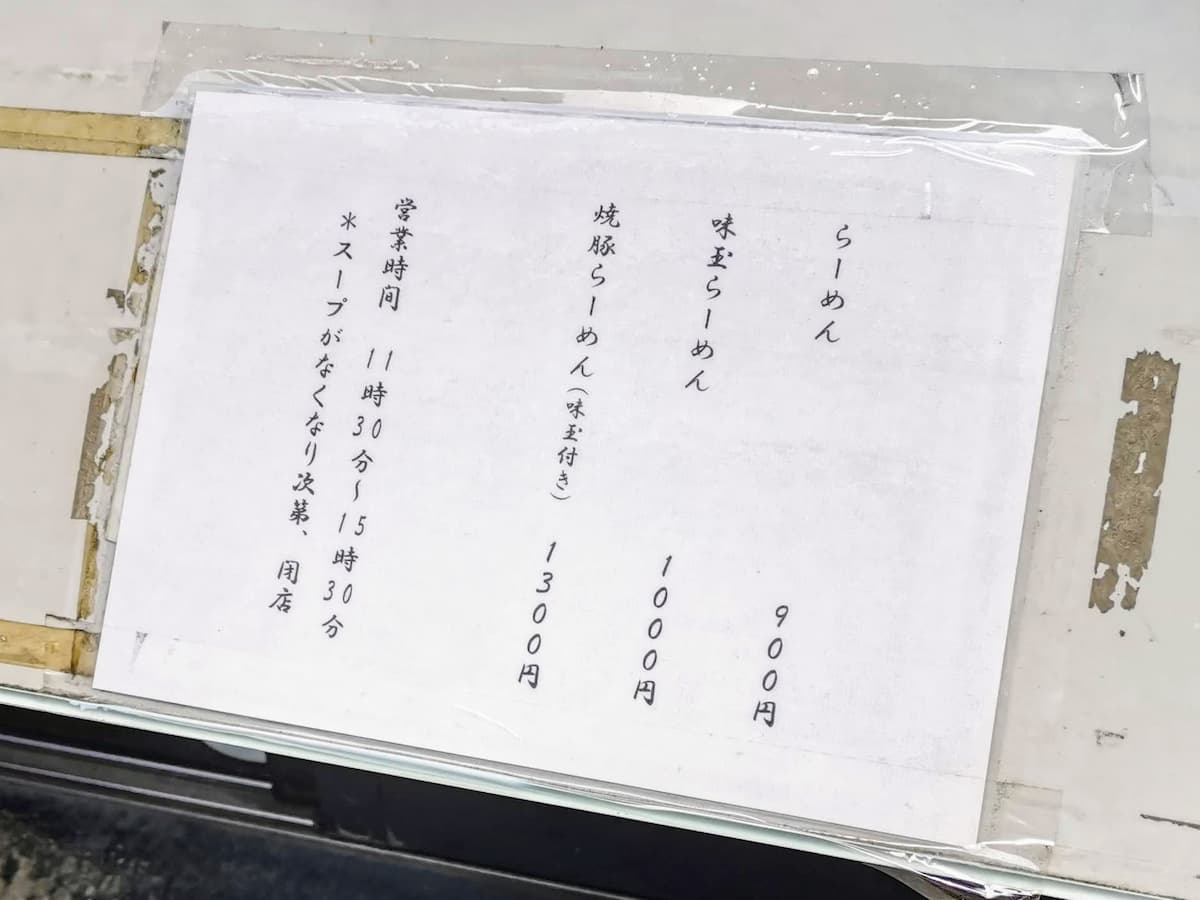 らーめん 900円
味玉らーめん 1000円
焼豚らーめん(味玉付き) 1300円
営業時間 11時30分~15時30分
*スープがなくなり次第、閉店